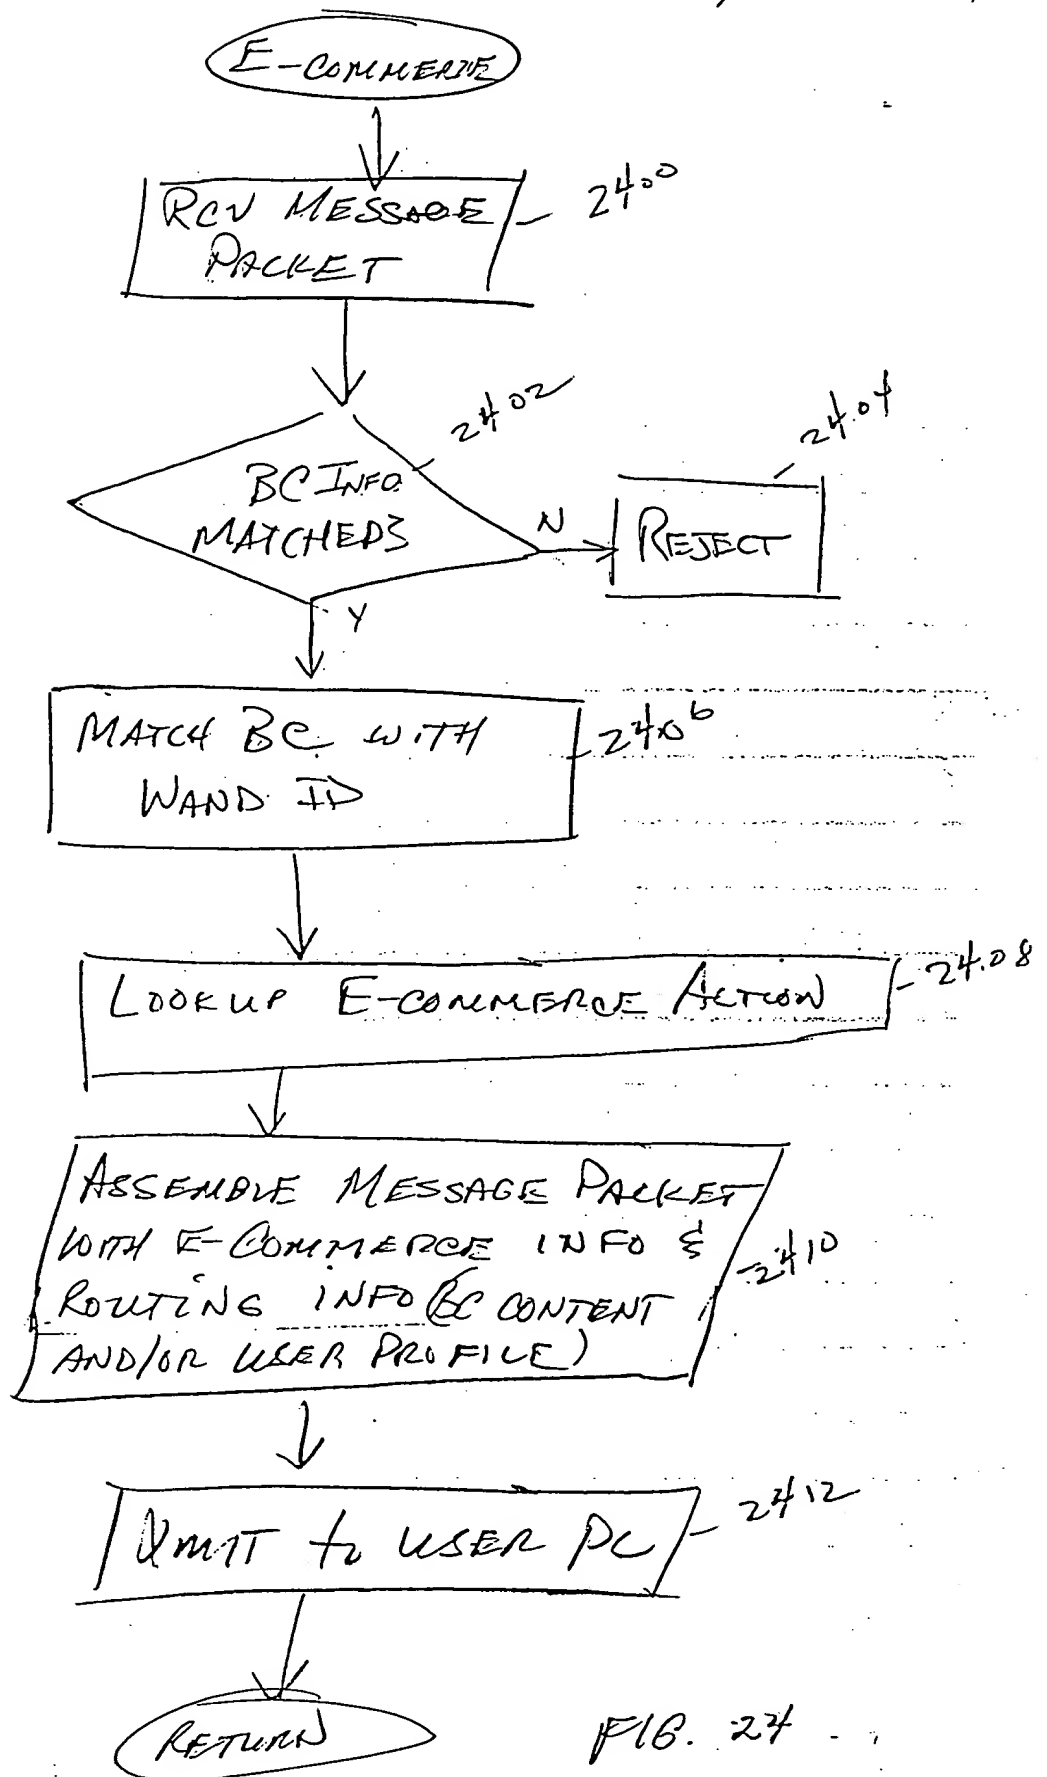 E-COMMERCE
RCV MESSAGE
PACKET
2400
BC INFO
MATCHED?
2402
N
REJECT
2404
Y
MATCH BC WITH
WAND ID
2406
LOOKUP E-COMMERCE ACTION
2408
ASSEMBLE MESSAGE PACKET
WITH E-COMMERCE INFO &
ROUTING INFO (BC CONTENT
AND/OR USER PROFILE)
2410
XMIT to USER PC
2412
RETURN
FIG. 24